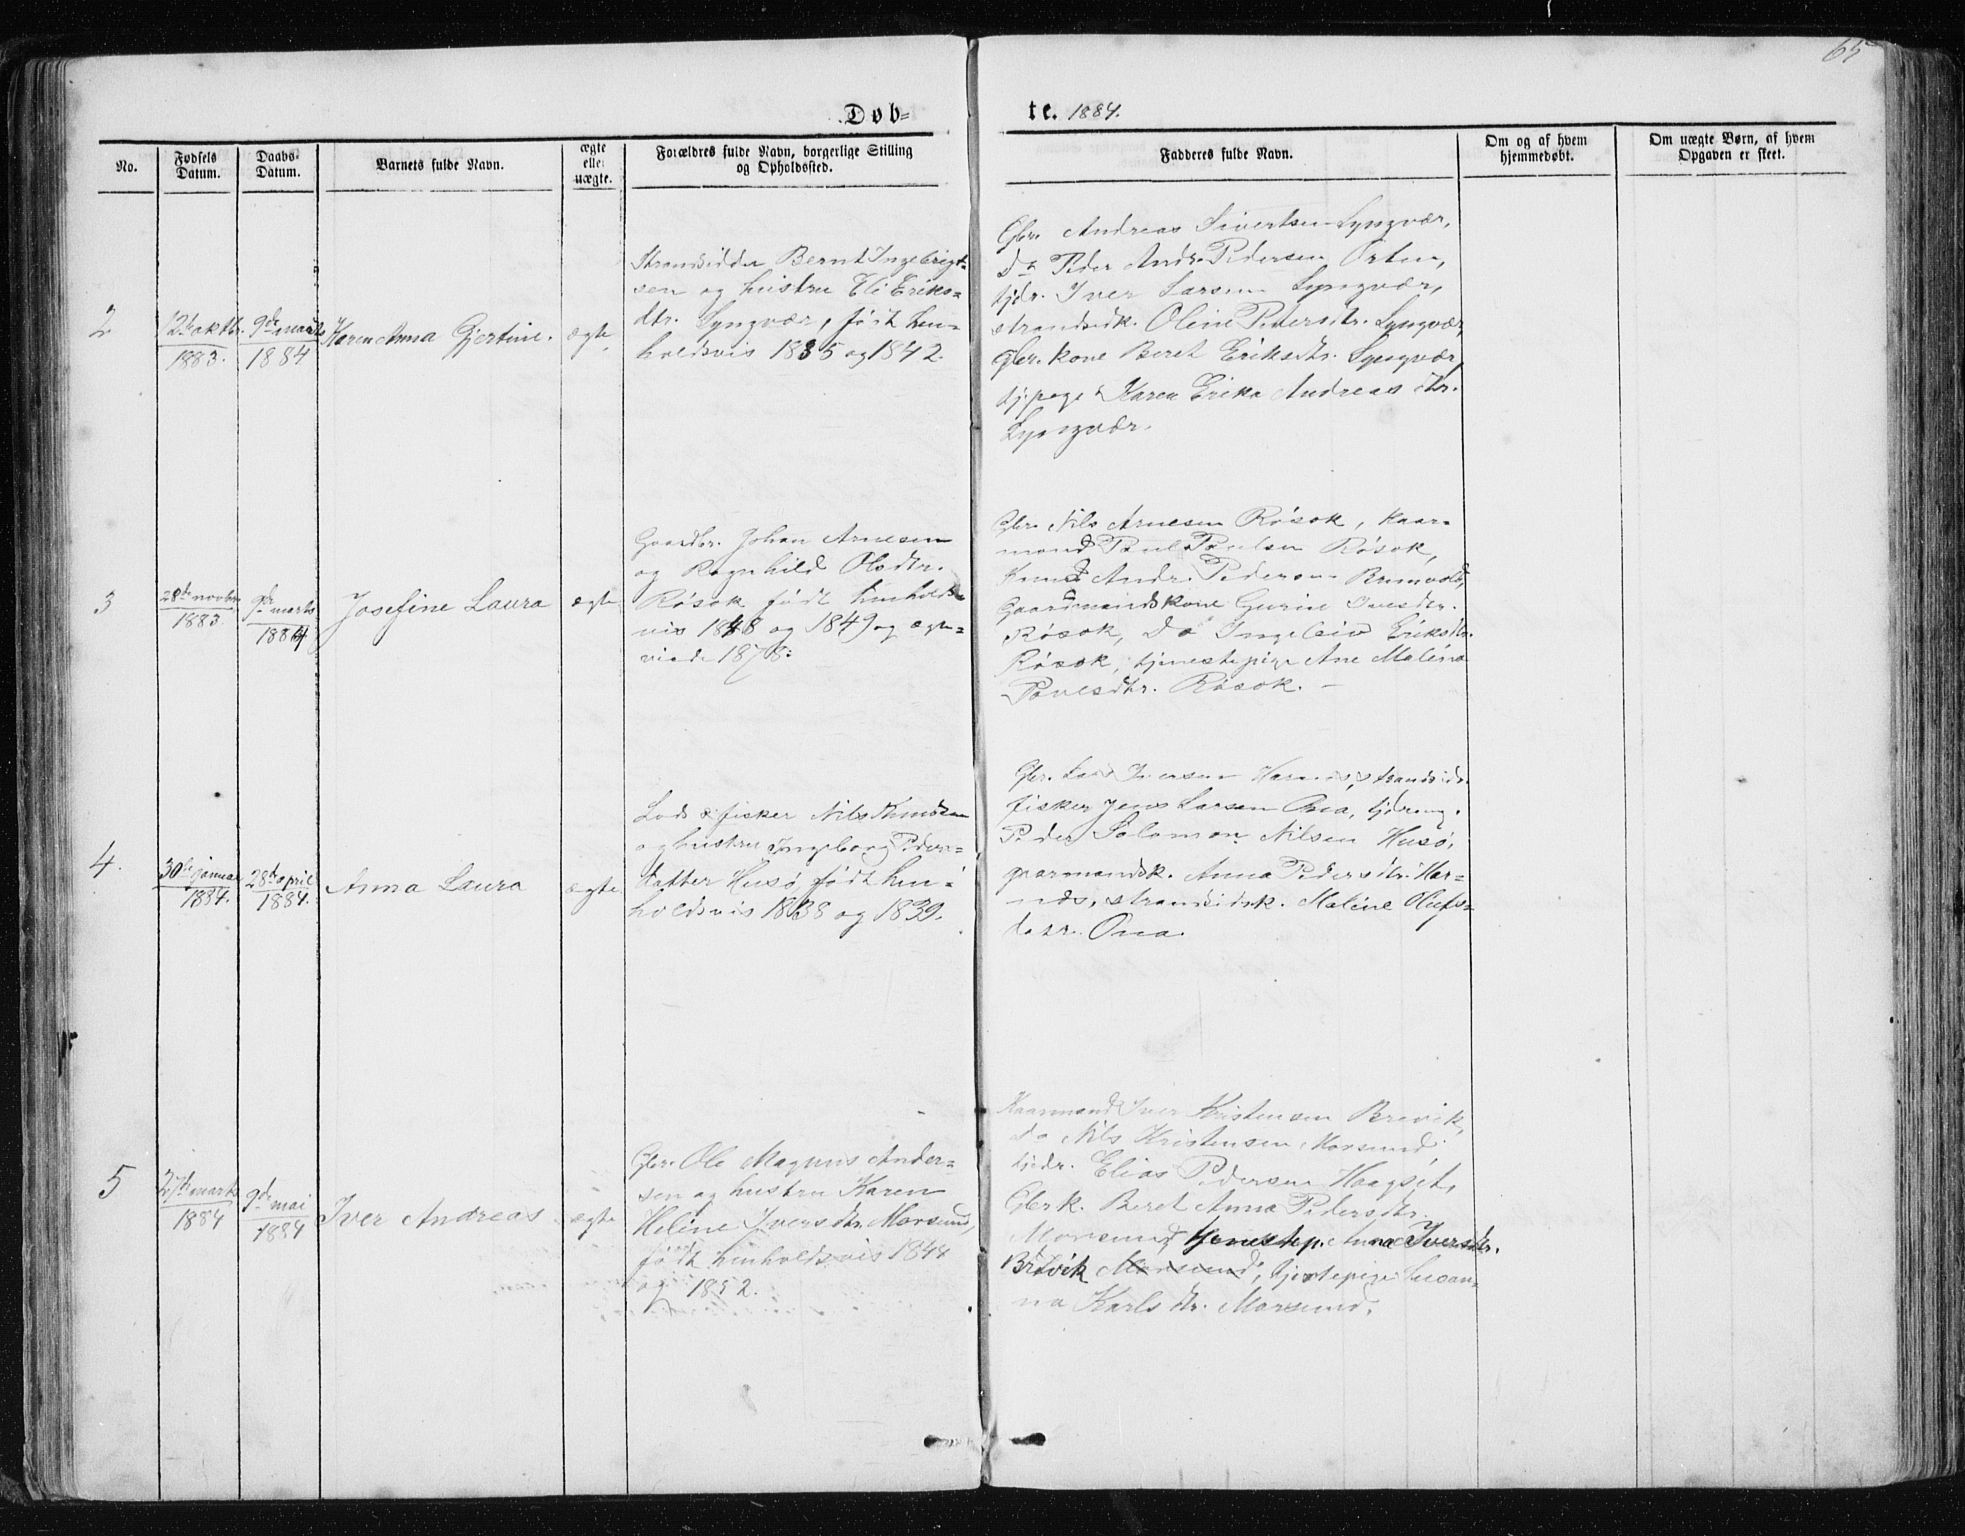 65
Døb=
te. 1884.
No.
Fødsels Datum.
Daabs-Datum.
Barnets fulde Navn.
ægte eller uægte.
Forældres fulde Navn, borgerlige Stilling og Opholdssted.
Fadderes fulde Navn.
Om og af hvem hjemmedøbt.
Om uægte Børn, af hvem Opgaven er skeet.
2
12te oktbr. 1883.
9de marts 1884
Karen Anna Gjertine.
ægte
Strandsidder Bernt Ingebrigt=
sen og hustru Eli Eriks=
dtr. Lyngvær, født hen=
holdsvis 1835 og 1842.
Gbr. Andreas Sivertsen Lyngvær,
Do Peder Andr. Pedersen Orten,
tjdr. Iver Larsen Lyngvær,
strandsidk. Oline Pedersdtr. Lyngvær,
gbr. kone Beret Eriksdtr. Lyngvær,
tj.pige Karen Erika Andreasdtr.
Lyngvær.
3
28de novbr. 1883.
9de marts 1884
Josefine Laura
ægte
Gaardbr. Johan Arnesen
og Ragnhild Olsdtr.
Røsok født henholds=
vis 1848 og 1849 og ægte=
viede 1878.
Gbr. Nils Arnesen Røsok, kaar=
mand Poul Poulsen Røsok,
Knud Andr. Pedersen
Gaardmandskone Gurine
Røsok, Do Eriksdtr.
Røsok, tjenestepige Ane Malena
Povelsdtr. Røsok. –
4.
30te januar 1884.
28de april 1884.
Anna Laura
ægte
Lods & fisker Nils Knudsen
og hustru Ingeborg Peders=
datter Husø født hen=
holdsvis 1838 og 1839.
Gbr. Iversen strandsid.
fisker Jens Larsen Ona, tjdreng.
Peder Salomon Nilsen Husø,
gaarmandsk. Anna Pedersdtr. Har=
nes, strandsidsk. Maline Olufs=
datr. Ona.
5
27de marts 1884
9de mai 1884
Iver Andreas
ægte
Gbr. Ole Magnus Ander=
sen og hustru Karen
Heline Iversdtr. Morsund,
født henholdsvis 1844
og 1852.
Kaarmand Iver Kristensen Brevik,
do Nils Kristensen Morsund,
tjedr. Elias Pedersen Haagset,
Gbrk. Beret Anna Pedersdtr.
Morsund, tjenestep. Anna Iversdtr.
Brevik Morsund, tjestepige Susan=
na Karlsdtr. Morsund.